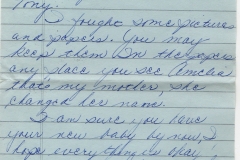 Tony.
I fought some pictures
and papers. You may
keep them. On the papers
any place you see Amelia
that's my mother, she
changed her name.
I am sure you have
your new baby by now, I
hope everything is okay,